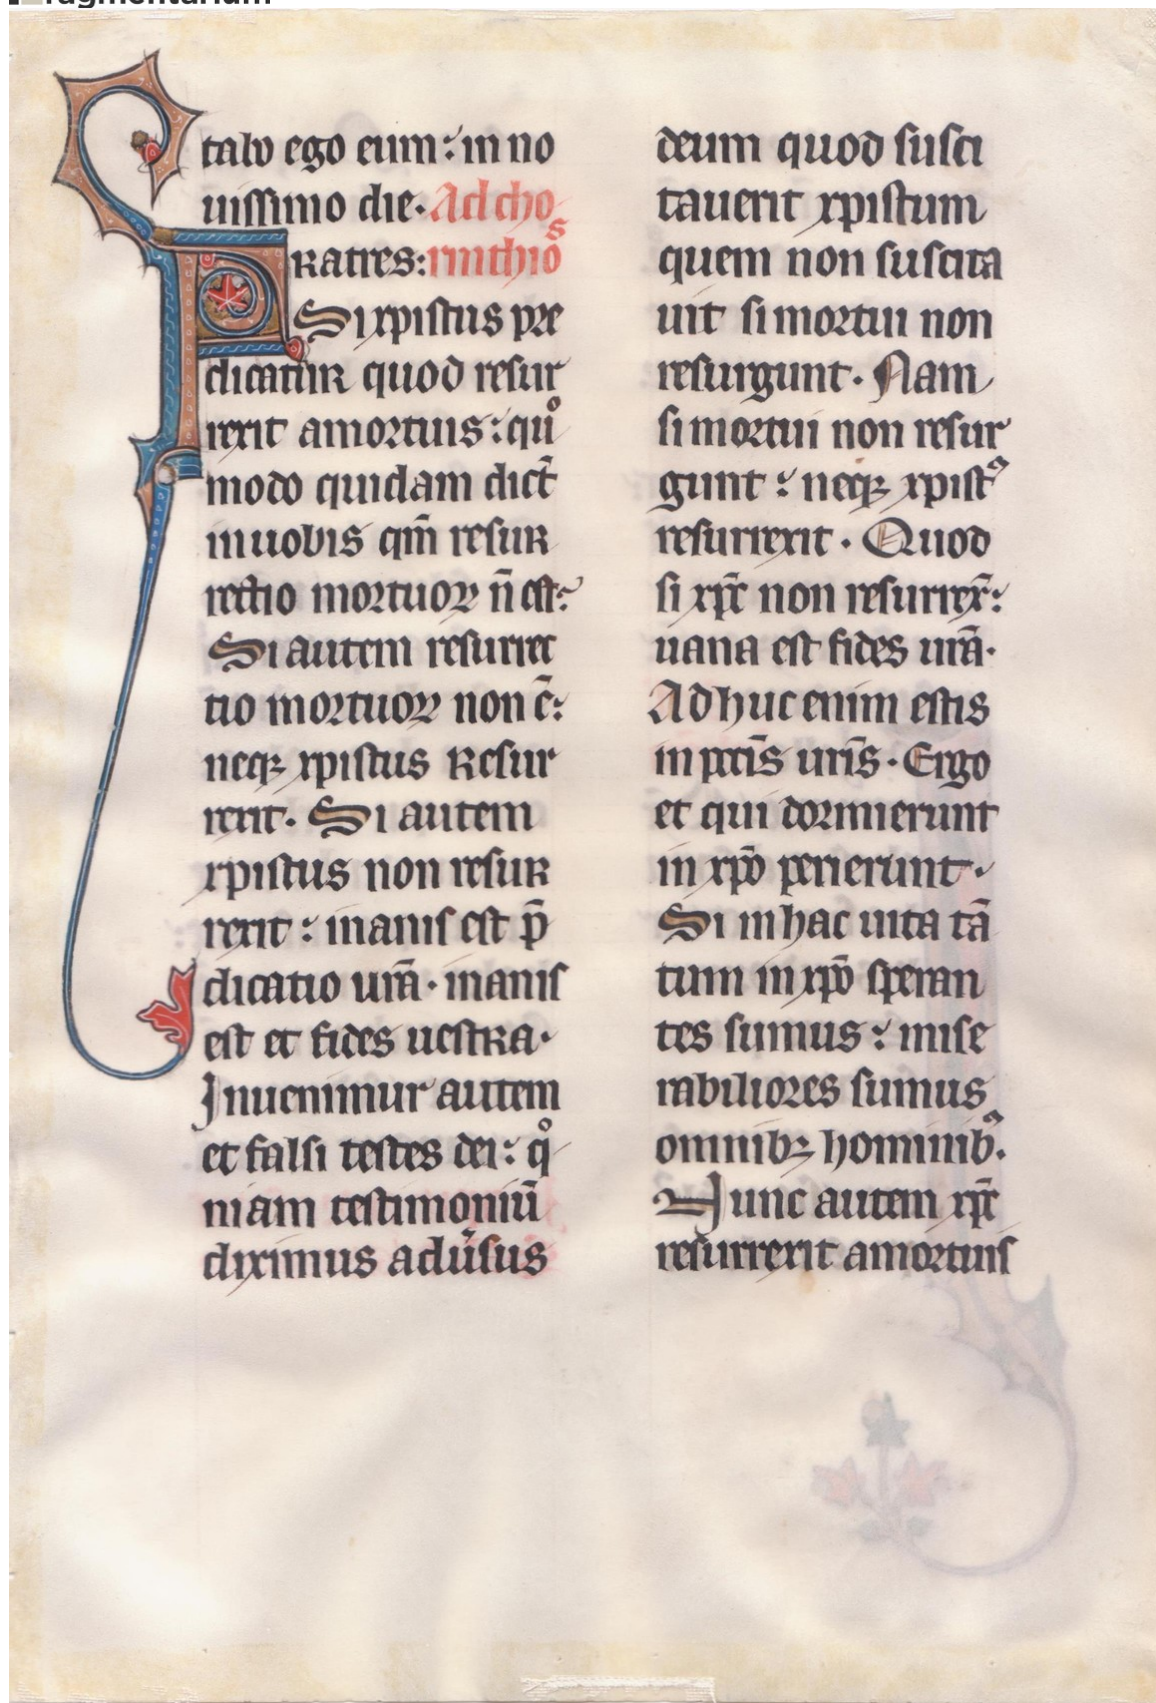 tabo ego eum: in no
uissimo die. Ad cho
ratres: rinthios
Si xpistus pre
dicatur quod resur
rexit amortuis: quº
modo quidam dict̄
inuobis qm̄ resur
rectio mortuoꝝ n̄ est:
Si autem resurrec
tio mortuoꝝ non ē:
neqꝫ xpistus resur
rexit. Si autem
xpistus non resur
rexit: inanis est p̄
dicatio ur̄a. inanis
est et fides uestra.
Inuenimur autem
et falsi testes dei: qº
niam testimoniū
diximus adu̾sus
deum quod susci
tauerit xpistum
quem non suscita
uit si mortui non
resurgunt. Nam
si mortui non resur
gunt: neqꝫ xpistꝰ
resurrexit. Quod
si xp̄c non resurrex̄:
uana est fides ur̄a.
Adhuc enim estis
in pcc̄is ur̄is. Ergo
et qui dormierunt
in xp̄o perierunt.
Si in hac uita tā
tum in xp̄o speran
tes sumus: mise
rabiliores sumus
omnibꝫ hominibꝰ.
Nunc autem xp̄c
resurrexit amortuis